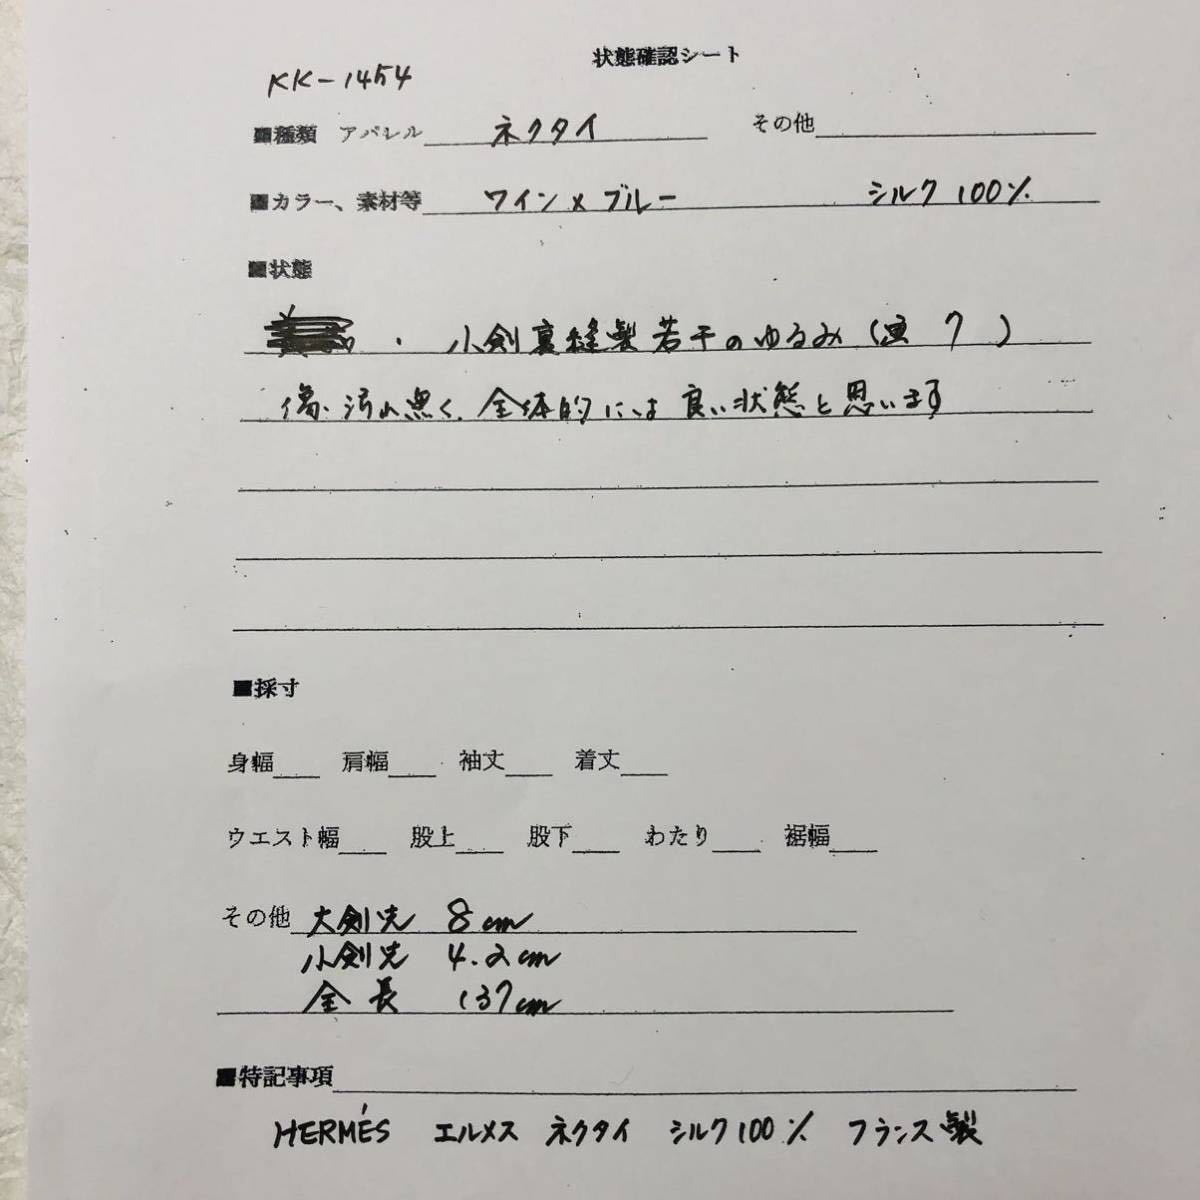 状態確認シート
KK-1454
■種類 アパレル ネクタイ その他
■カラー、素材等 ワイン×ブルー シルク100%
■状態
・小剣裏縫製若干のゆるみ(画7)
傷・汚れ無く、全体的には良い状態と思います
■採寸
身幅 肩幅 袖丈 着丈
ウエスト幅 股上 股下 わたり 裾幅
その他 大剣先 8cm
小剣先 4.2cm
全長 137cm
■特記事項
HERMÉS エルメス ネクタイ シルク100% フランス製